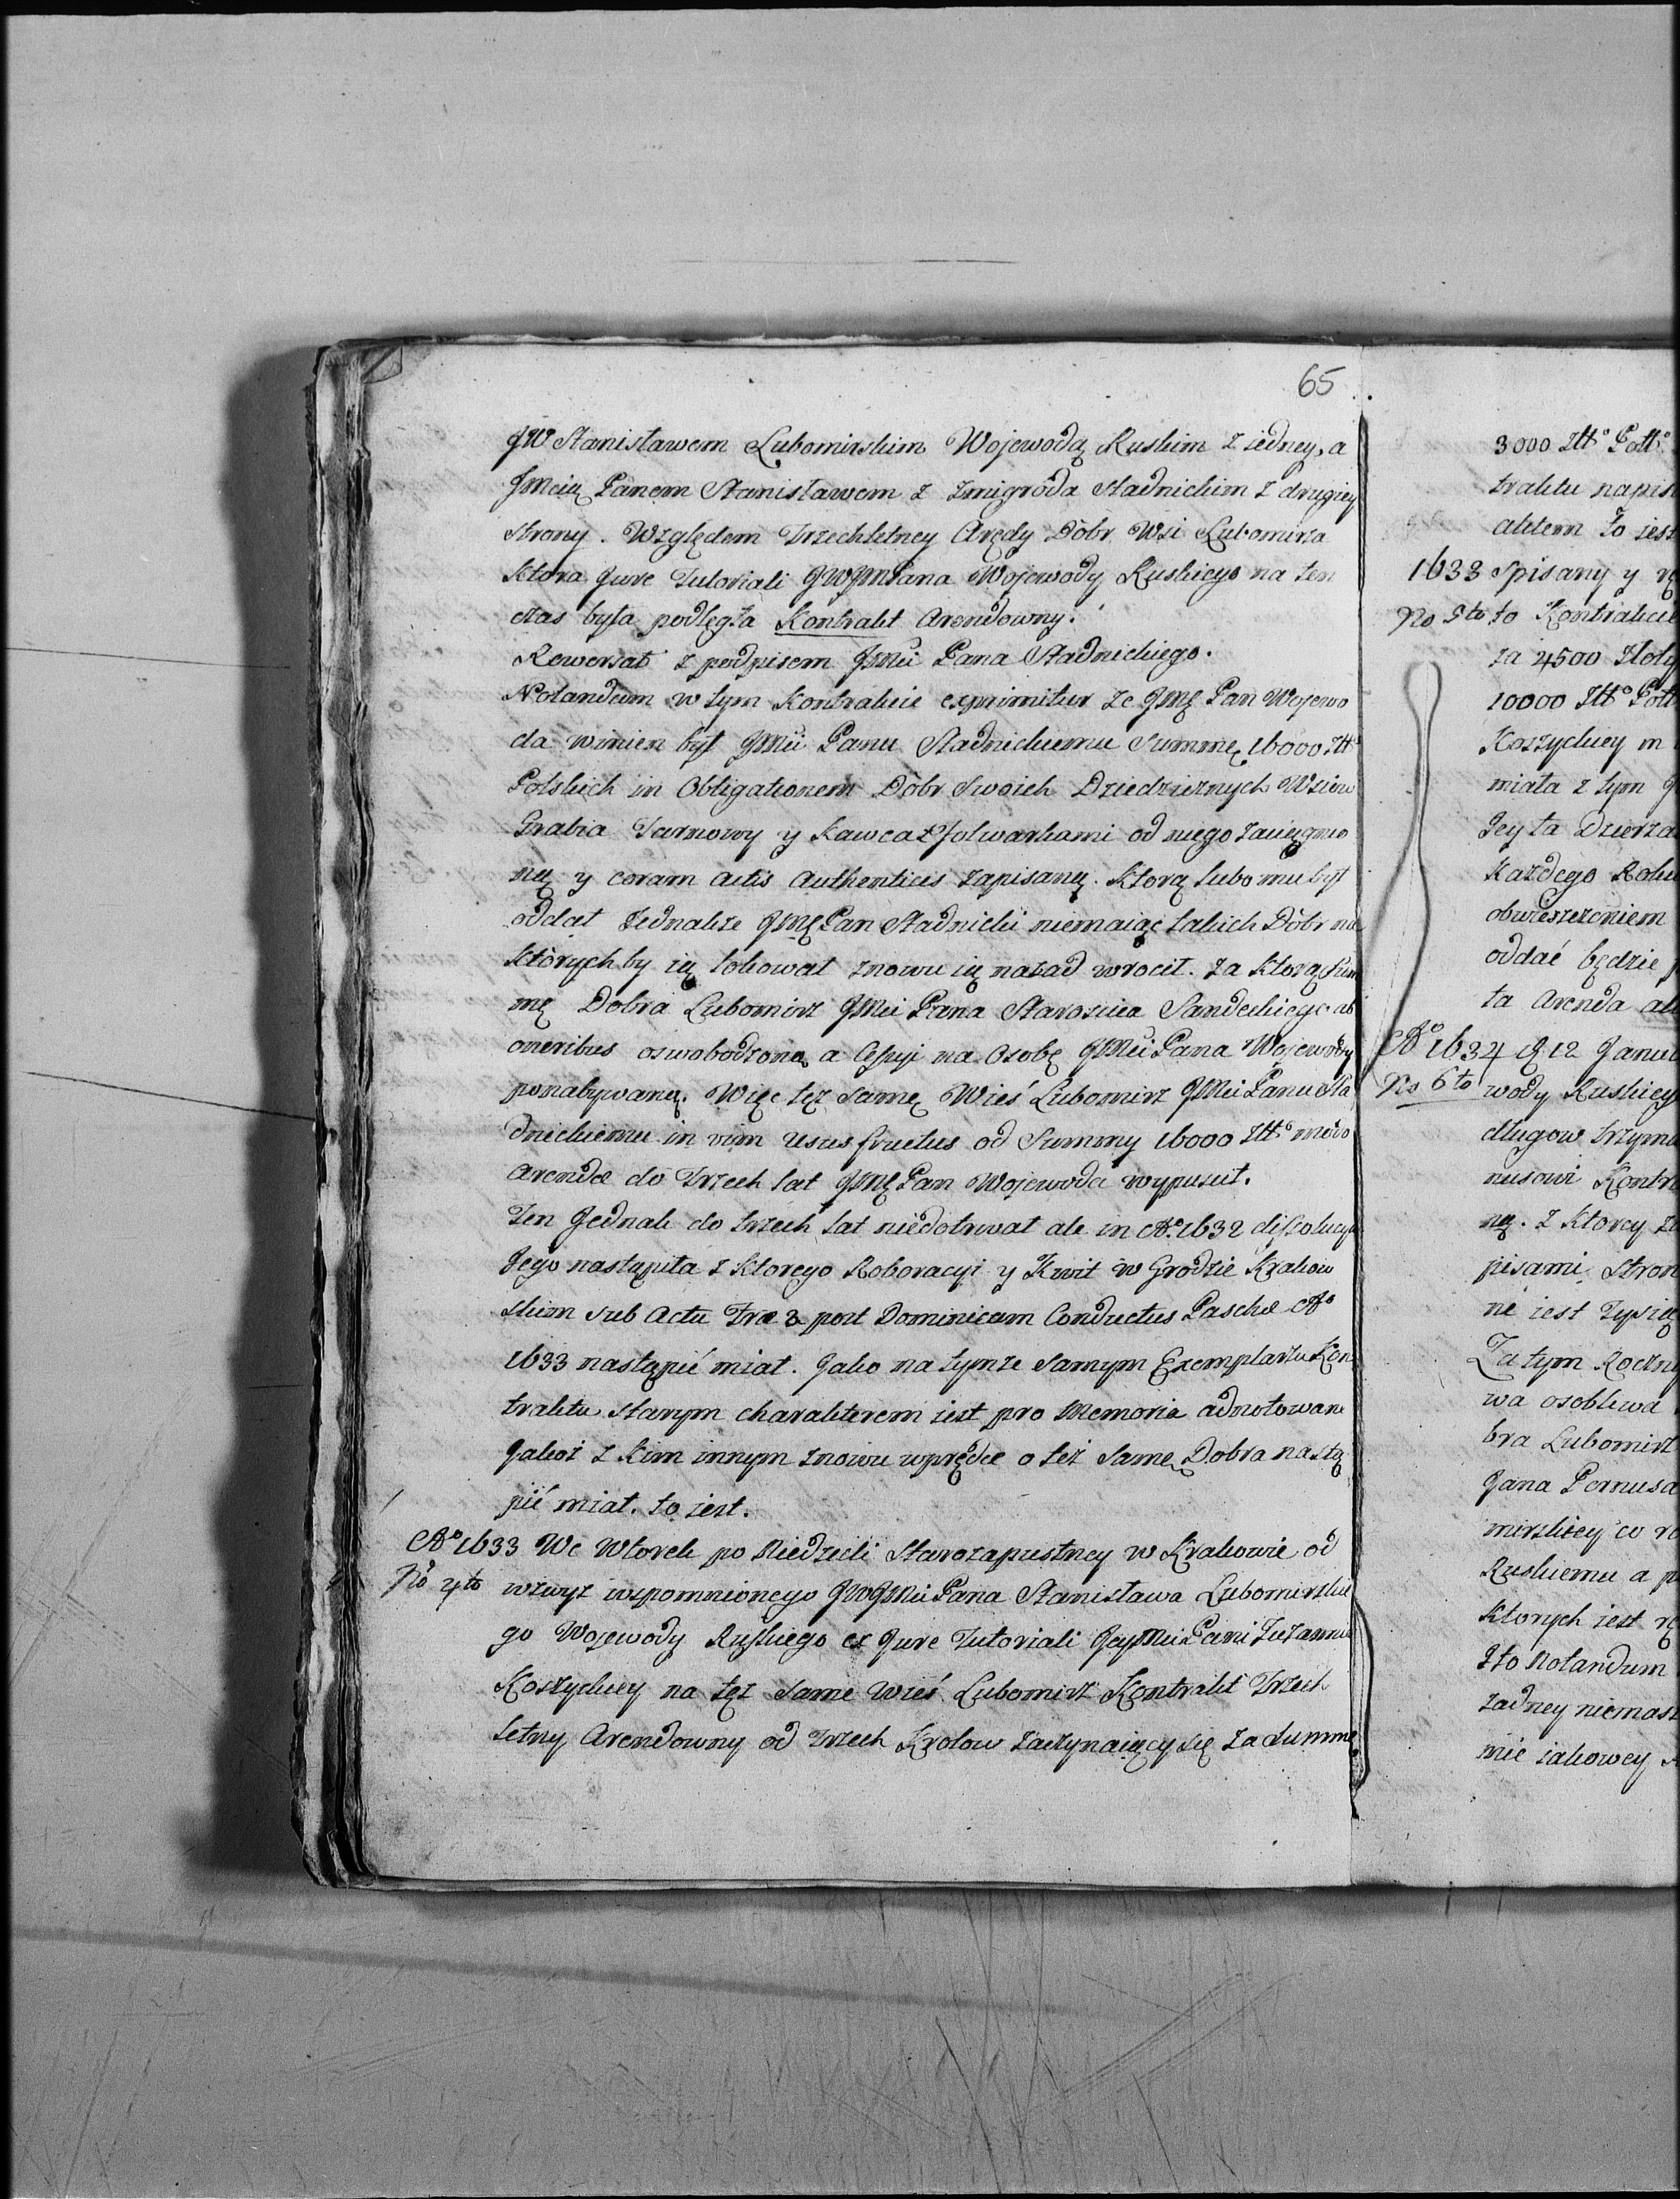 65
JW Stanisławem Lubomirskim Wojewodą Ruskim z iedney, a
JMcią Panem Stanisławem z Zmigroda Stadnickim z drugiey
Strony. Względem Trzechletney Arędy Dòbr Wsi Lubomirza
ktora Jure Tutoriali JWJmPana Wojewody Ruskiego na ten
czas była podległa Kontrakt Arendowny.
Rewersał z podpisem JMci Pana Stadnickiego.
Notandum w tym Kontrakcie exprimitur ze JMę Pan Wojewo
da winien był JMci Panu Stadnickiemu Summę 16000 Ztt°
Polskich in Obligationem Dòbr Swoich Dziedzicznych Wsiow
Grabia Tarnowy y Kawca z Folwarkami od niego zaciągnio
ną y coram Actis Authenticis zapisaną. Ktorą lubo mu był
oddał Jednakże JMę Pan Stadnicki niemaiąc takich Dòbr na
ktòrych by ią lokował znowu ią nazad wrocił. Za ktorą Sum
mę Dobra Lubomirz JMci Pana Starościca Sandeckiego ab
oneribus oswobodzone a Cessyi na Osobę JMci Pana Wojewody
ponabywaney. Więc tęz Samę Wieś Lubomirz JMci Panu Sta
dnickiemu in vim usus fructus od Summy 16000 Ztt°
Arendæ do Trzech lat JMę Pan Wojewoda wypuscił.
Ten Jednak do trzech lat niedotrwał ale in A°. 1632 dissolucya
Jego nastąpiła z ktorego Roboracyi y Kwit w Grodzie Krakow
skim Sub Actu Fræ 3 post Dominicam Conductus Paschæ A°
1633 nastąpić miał. Jako na tymze Samym Exemplarzu Kon
traktu Starym charakterem iest pro Memoria adnotowane
Jakoż z kim innym znowu wprędce o też Same Dobra nastą
pić miał. to iest.
A° 1633 We Wtorek po Niedzieli Starozapustney w Krakowie od
No 4to wzwyz wspomnionego JWJMci Pana Stanisława Lubomirskie
go Wojewody Ruskiego ex Jure Tutoriali JeyMci Pani Zuzannie
Koszyckiey na tęz Same Wieś Lubomirz Kontrakt Trzech
letny Arendowny od Trzech Krolow zaczynaiący się za Summę
3000 Ztt° Poll°
traktu napis
aktem to iest
1633 Spisany y rę
No 5to to Kontrakcie
za 4500 Złoty
10000 Ztt° Poll
Koszyckiey m
miała z tym J
Jey ta Dzierza
Każdego Roku
obwieszczeniem
oddać będzie p
ta Arenda ak
A° 1634 12 Janua
No 6to wody Ruskiey
długow trzyma
nusowi Kontr
ną. z ktorey za
pisami Stron
ne iest Tysią
Zatym Roczny
wa osobliwa
bra Lubomirz
Jana Pernusa
mirskiey co ro
Ruskiemu a p
ktorych iest rę
Ito Notandum
żadney niemasz
mie iakowey